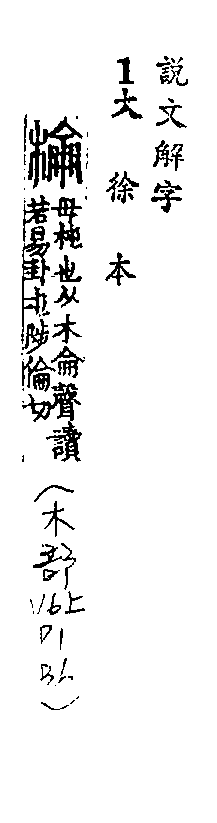 說文解字
1大徐本
棆
毋杶也从木侖聲讀
若易卦屯陟倫切
(木部
V6上
P1